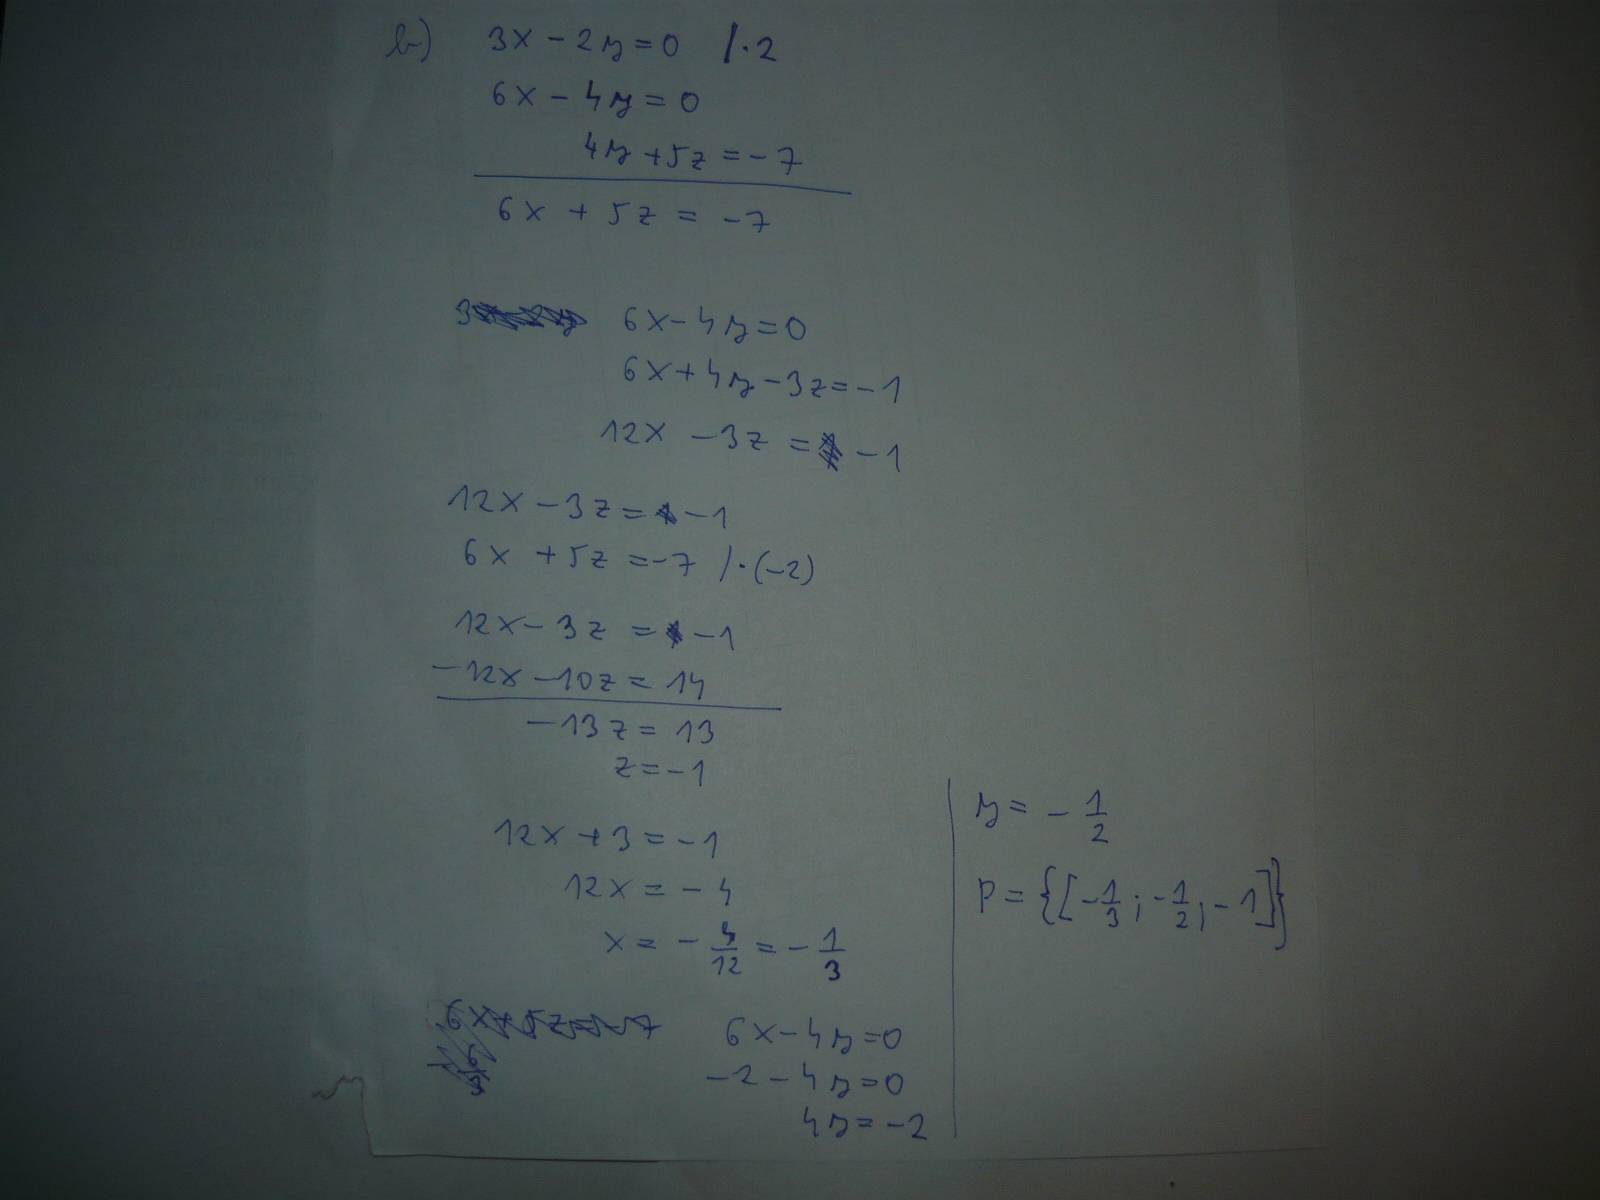 b) 3x - 2y = 0 /·2
6x - 4y = 0
4y + 5z = -7
6x + 5z = -7
3
6x - 4y = 0
6x + 4y - 3z = -1
12x - 3z = -1
12x - 3z = -1
6x + 5z = -7 /·(-2)
12x - 3z = -1
-12x - 10z = 14
-13z = 13
z = -1
12x + 3 = -1
12x = -4
x = -4/12 = -1/3
6x + 5z = -7
6x - 4y = 0
-2 - 4y = 0
4y = -2
y = -1/2
P = {[-1/3; -1/2; -1]}